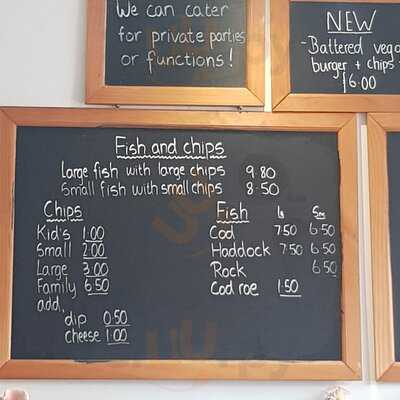 We can cater
for private parties
or functions!
NEW
-Battered
burger + chips
£6.00
Fish and chips
Large fish with large chips 9.80
Small fish with small chips 8.50
Chips
Kid's 1.00
Small 2.00
Large 3.00
Family 6.50
add,
dip 0.50
cheese 1.00
Fish lg Sm
Cod 7.50 6.50
Haddock 7.50 6.50
Rock 6.50
Cod roe 1.50